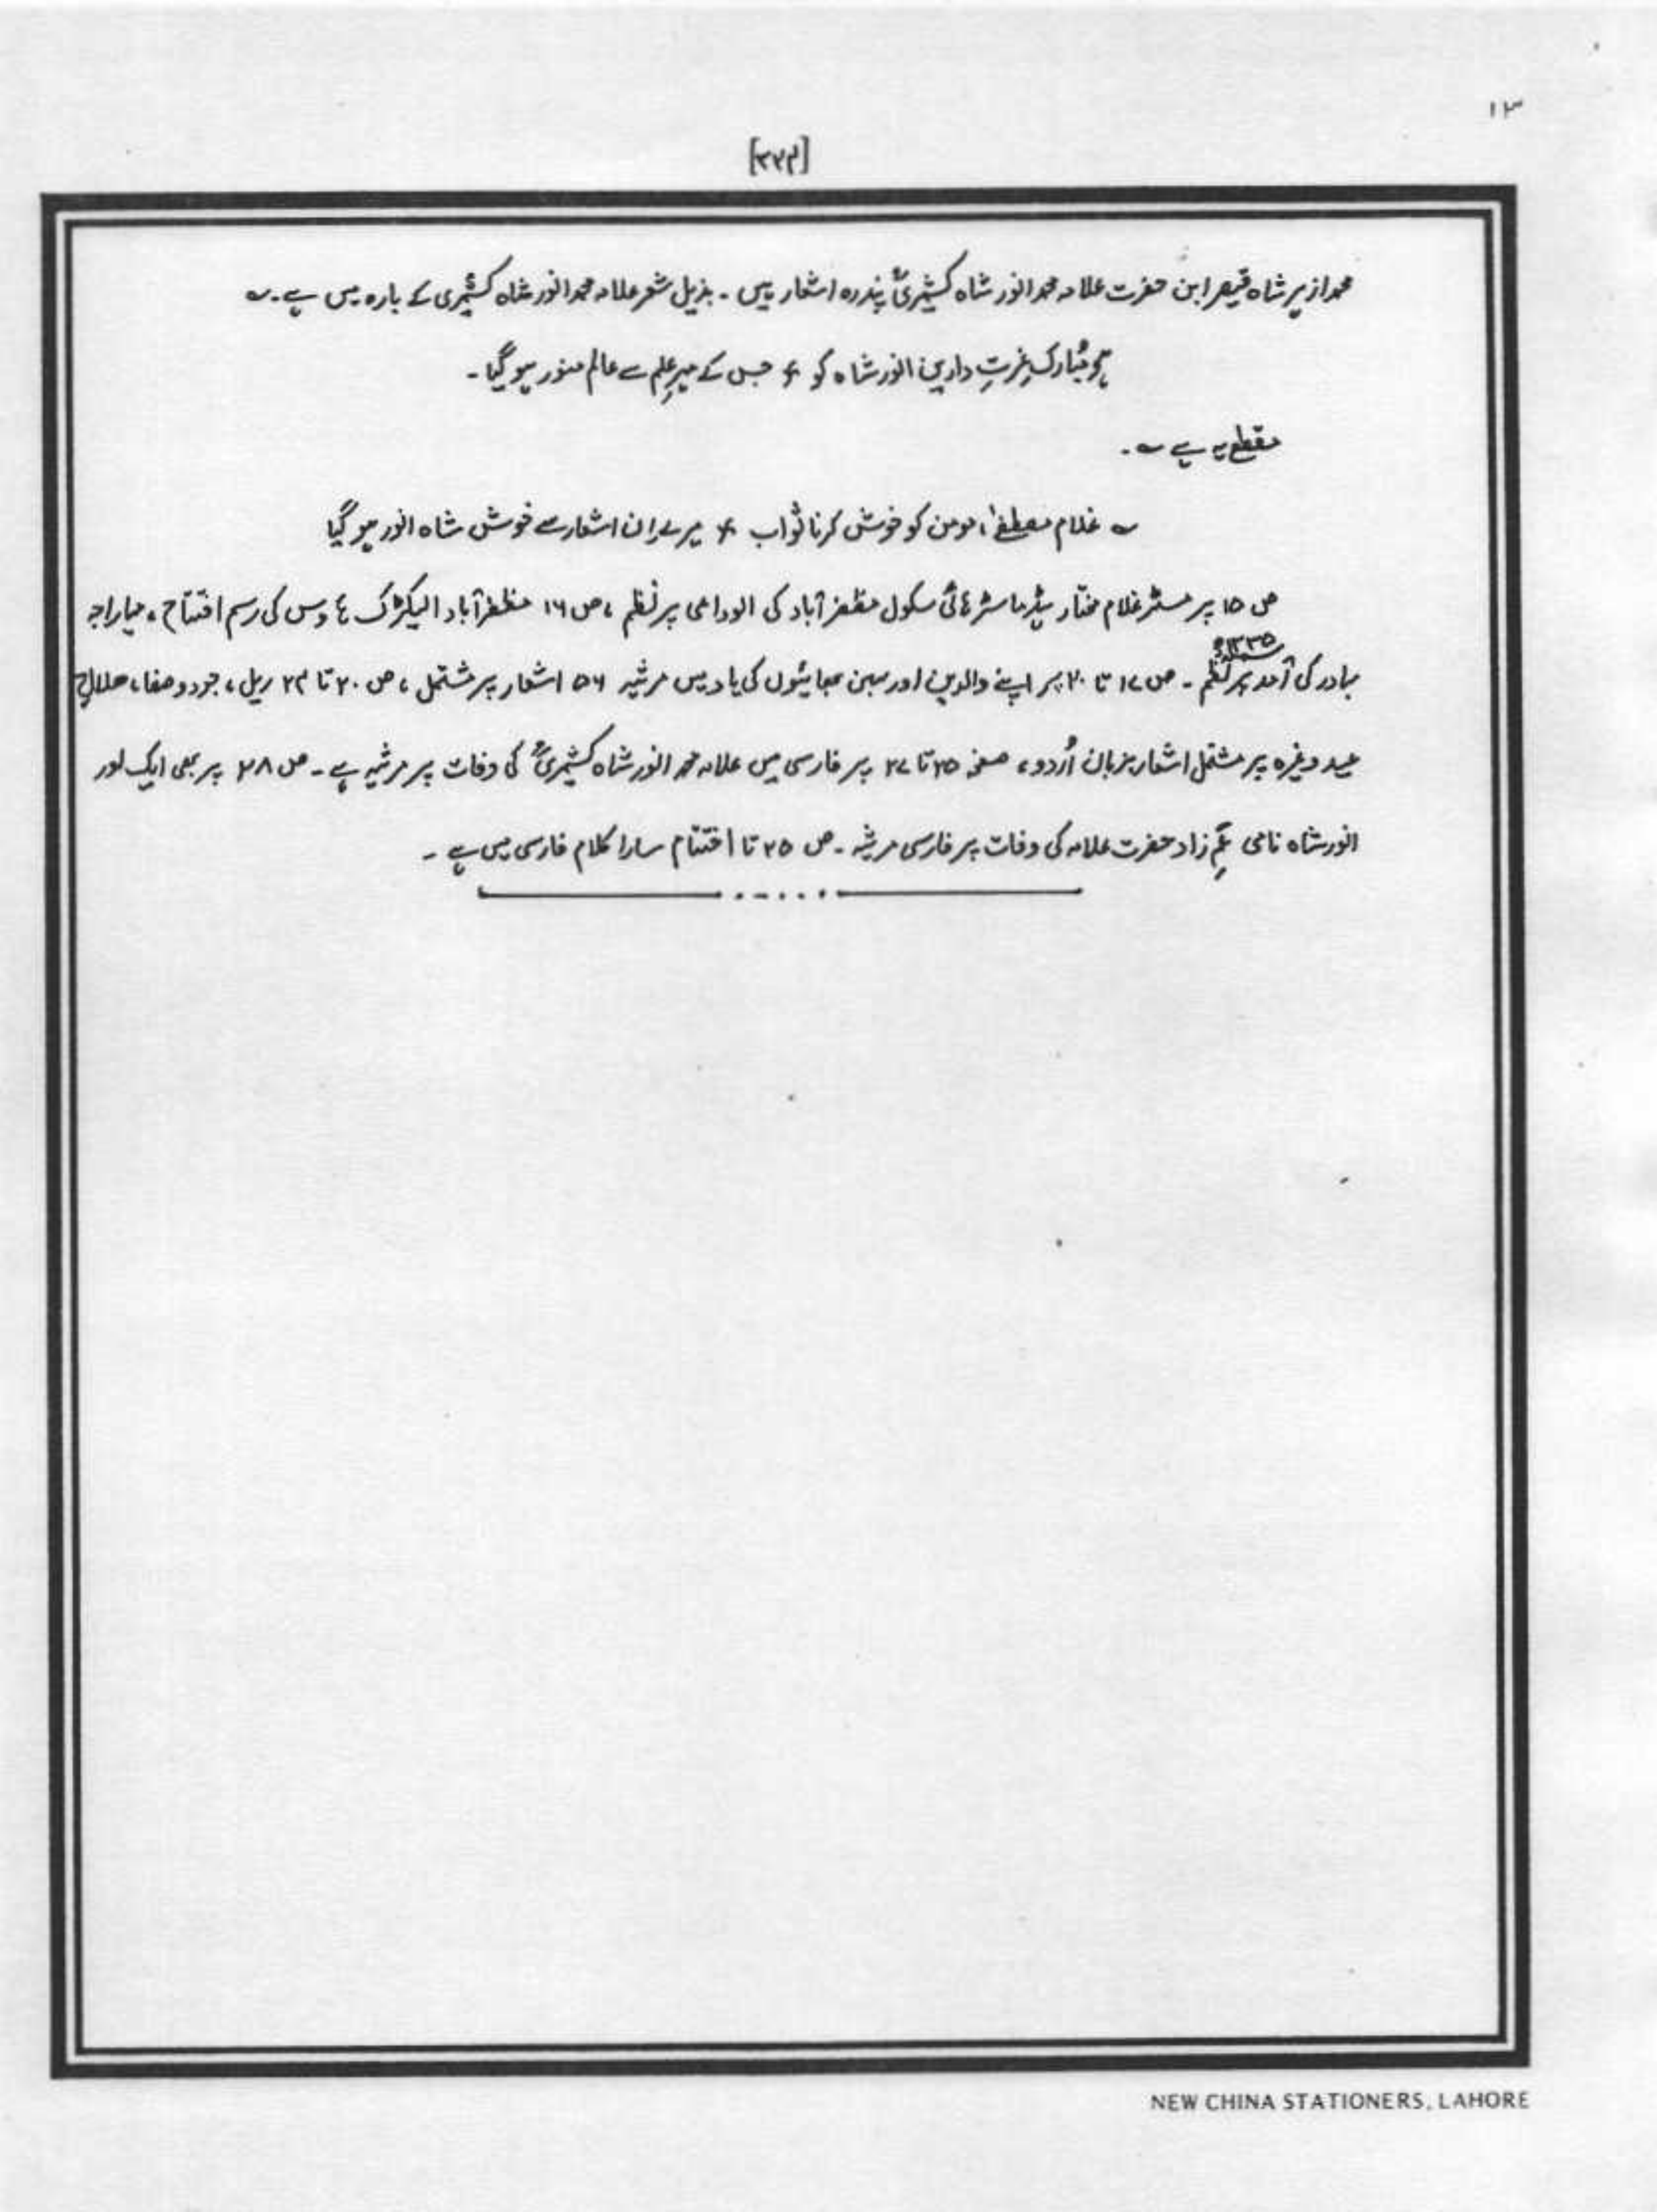 ۱۳
[۳۷۴]
محمد ازہر شاہ قیصر ابن حضرت علامہ محمد انور شاہ کشمیریؒ پندرہ اشعار ہیں ۔ بذیل شعر علامہ محمد انور شاہ کشمیری کے بارہ میں ہے ۔ ؎
ہو مُبارک عزتِ دارین انور شاہ کو ؎ جس کے مہرِ علم سے عالم منور ہو گیا ۔
مقطع یہ ہے ؎ ۔
؎ غلام مصطفےٰ ، مومن کو خوش کرنا ثواب ؎ میرے ان اشعار سے خوش شاہ انور ہو گیا
ص ۱۵ پر مسٹر غلام مختار ہیڈ ماسٹر ہائی سکول مظفر آباد کی الوداعی پر نظم ، ص ۱۶ مظفر آباد الیکٹرک ہاوس کی رسم افتتاح ، مہاراجہ
بہادر کی آمد پر نظم ۔ ص ۱۷ تا ۲۰ پر اپنے والدین اور بہن بھائیوں کی یاد میں مرثیہ ۵۶ اشعار پر مشتمل ، ص ۲۰ تا ۲۴ ریل ، جود و صفا ، ھلالِ
عید وغیرہ پر مشتمل اشعار بزبان اُردو ، صفحہ ۲۵ تا ۲۷ پر فارسی میں علامہ محمد انور شاہ کشمیریؒ کی وفات پر مرثیہ ہے ۔ ص ۲۸ پر بھی ایک اور
انور شاہ نامی زاد حضرت علامہ کی وفات پر فارسی مرثیہ ۔ ص ۲۵ تا اختتام سارا کلام فارسی میں ہے ۔
NEW CHINA STATIONERS, LAHORE